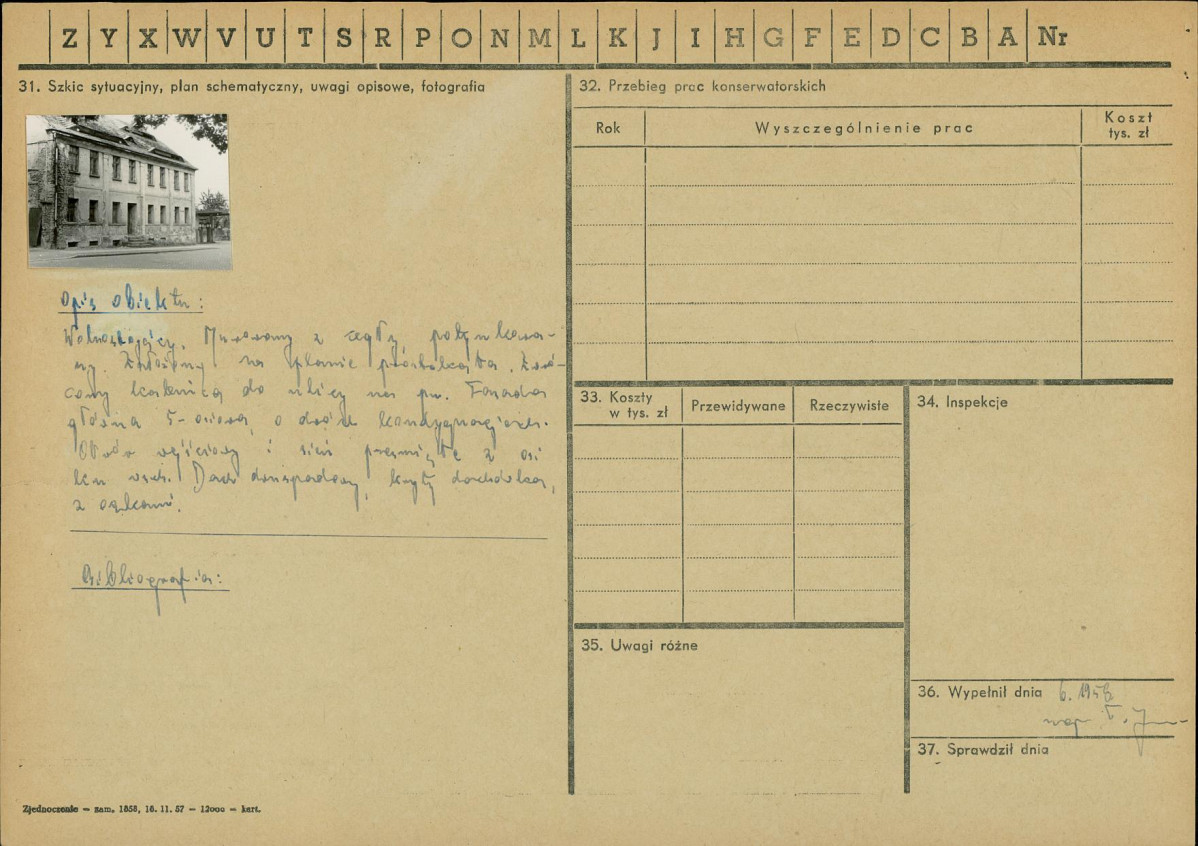 Z Y X W V U T S R P O N M L K J I H G F E D C B A Nr
31. Szkic sytuacyjny, plan schematyczny, uwagi opisowe, fotografia
Opis obiektu:
Wolnostojący. Murowany z cegły, potynkowa-
ny. Założony na planie prostokąta. Zwró-
cony kalenicą do ulicy na pn. Fasada
główna 5-osiowa, o dwóch kondygnacjach.
Otwór wejściowy i sień przesunięte z osi
ku wsch. Dach dwuspadowy, kryty dachówką,
z
Bibliografia:
Zjednoczenie – zam. 1858, 16. 11. 57 – 12000 – kart.
32. Przebieg prac konserwatorskich
Rok
Wyszczególnienie prac
Koszt
tys. zł
33. Koszty
w tys. zł
Przewidywane
Rzeczywiste
34. Inspekcje
35. Uwagi różne
36. Wypełnił dnia
mgr
37. Sprawdził dnia